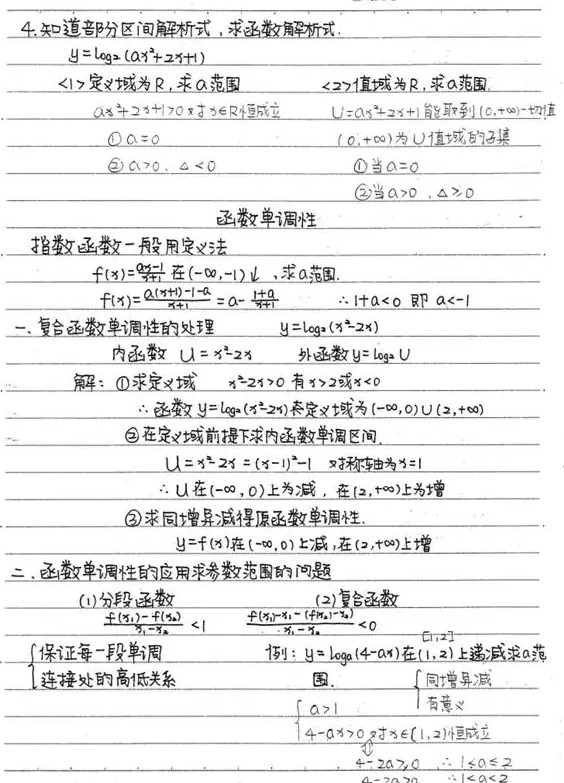 4.知道部分区间解析式,求函数解析式.
y=log₂(ax²+2x+1)
<1>定义域为R,求a范围 <2>值域为R,求a范围.
ax²+2x+1>0对x∈R恒成立 U=ax²+2x+1能取到(0,+∞)一切值
①a=0 (0,+∞)为U值域的子集
②a>0.△<0 ①当a=0
②当a>0,△≥0
函数单调性
指数函数一般用定义法
f(x)=(ax-1)/(x+1) 在(-∞,-1)↓,求a范围.
f(x)=(a(x+1)-1-a)/(x+1)=a-(1+a)/(x+1) ∴1+a<0 即 a<-1
一、复合函数单调性的处理 y=log₂(x²-2x)
内函数 U=x²-2x 外函数y=log₂U
解:①求定义域 x²-2x>0 有x>2或x<0
∴函数y=log₂(x²-2x)定义域为(-∞,0)∪(2,+∞)
②在定义域前提下求内函数单调区间.
U=x²-2x=(x-1)²-1 对称轴为x=1
∴U在(-∞,0)上为减,在(2,+∞)上为增
③求同增异减得原函数单调性.
y=f(x)在(-∞,0)上减,在(2,+∞)上增
二.函数单调性的应用求参数范围的问题
(1)分段函数 (2)复合函数
(f(x₁)-f(x₂))/(x₁-x₂)<1 (f(x₁)-x₁-(f(x₂)-x₂))/(x₁-x₂)<0
[1,2]
{保证每一段单调 例:y=logₐ(4-ax)在(1,2)上递减求a范
连接处的高低关系 围. {同增异减
有意义
{a>1
4-ax>0对x∈(1,2)恒成立
⇕
4-2a≥0 ∴1<a≤2
4-2a>0 ∴1<a<2